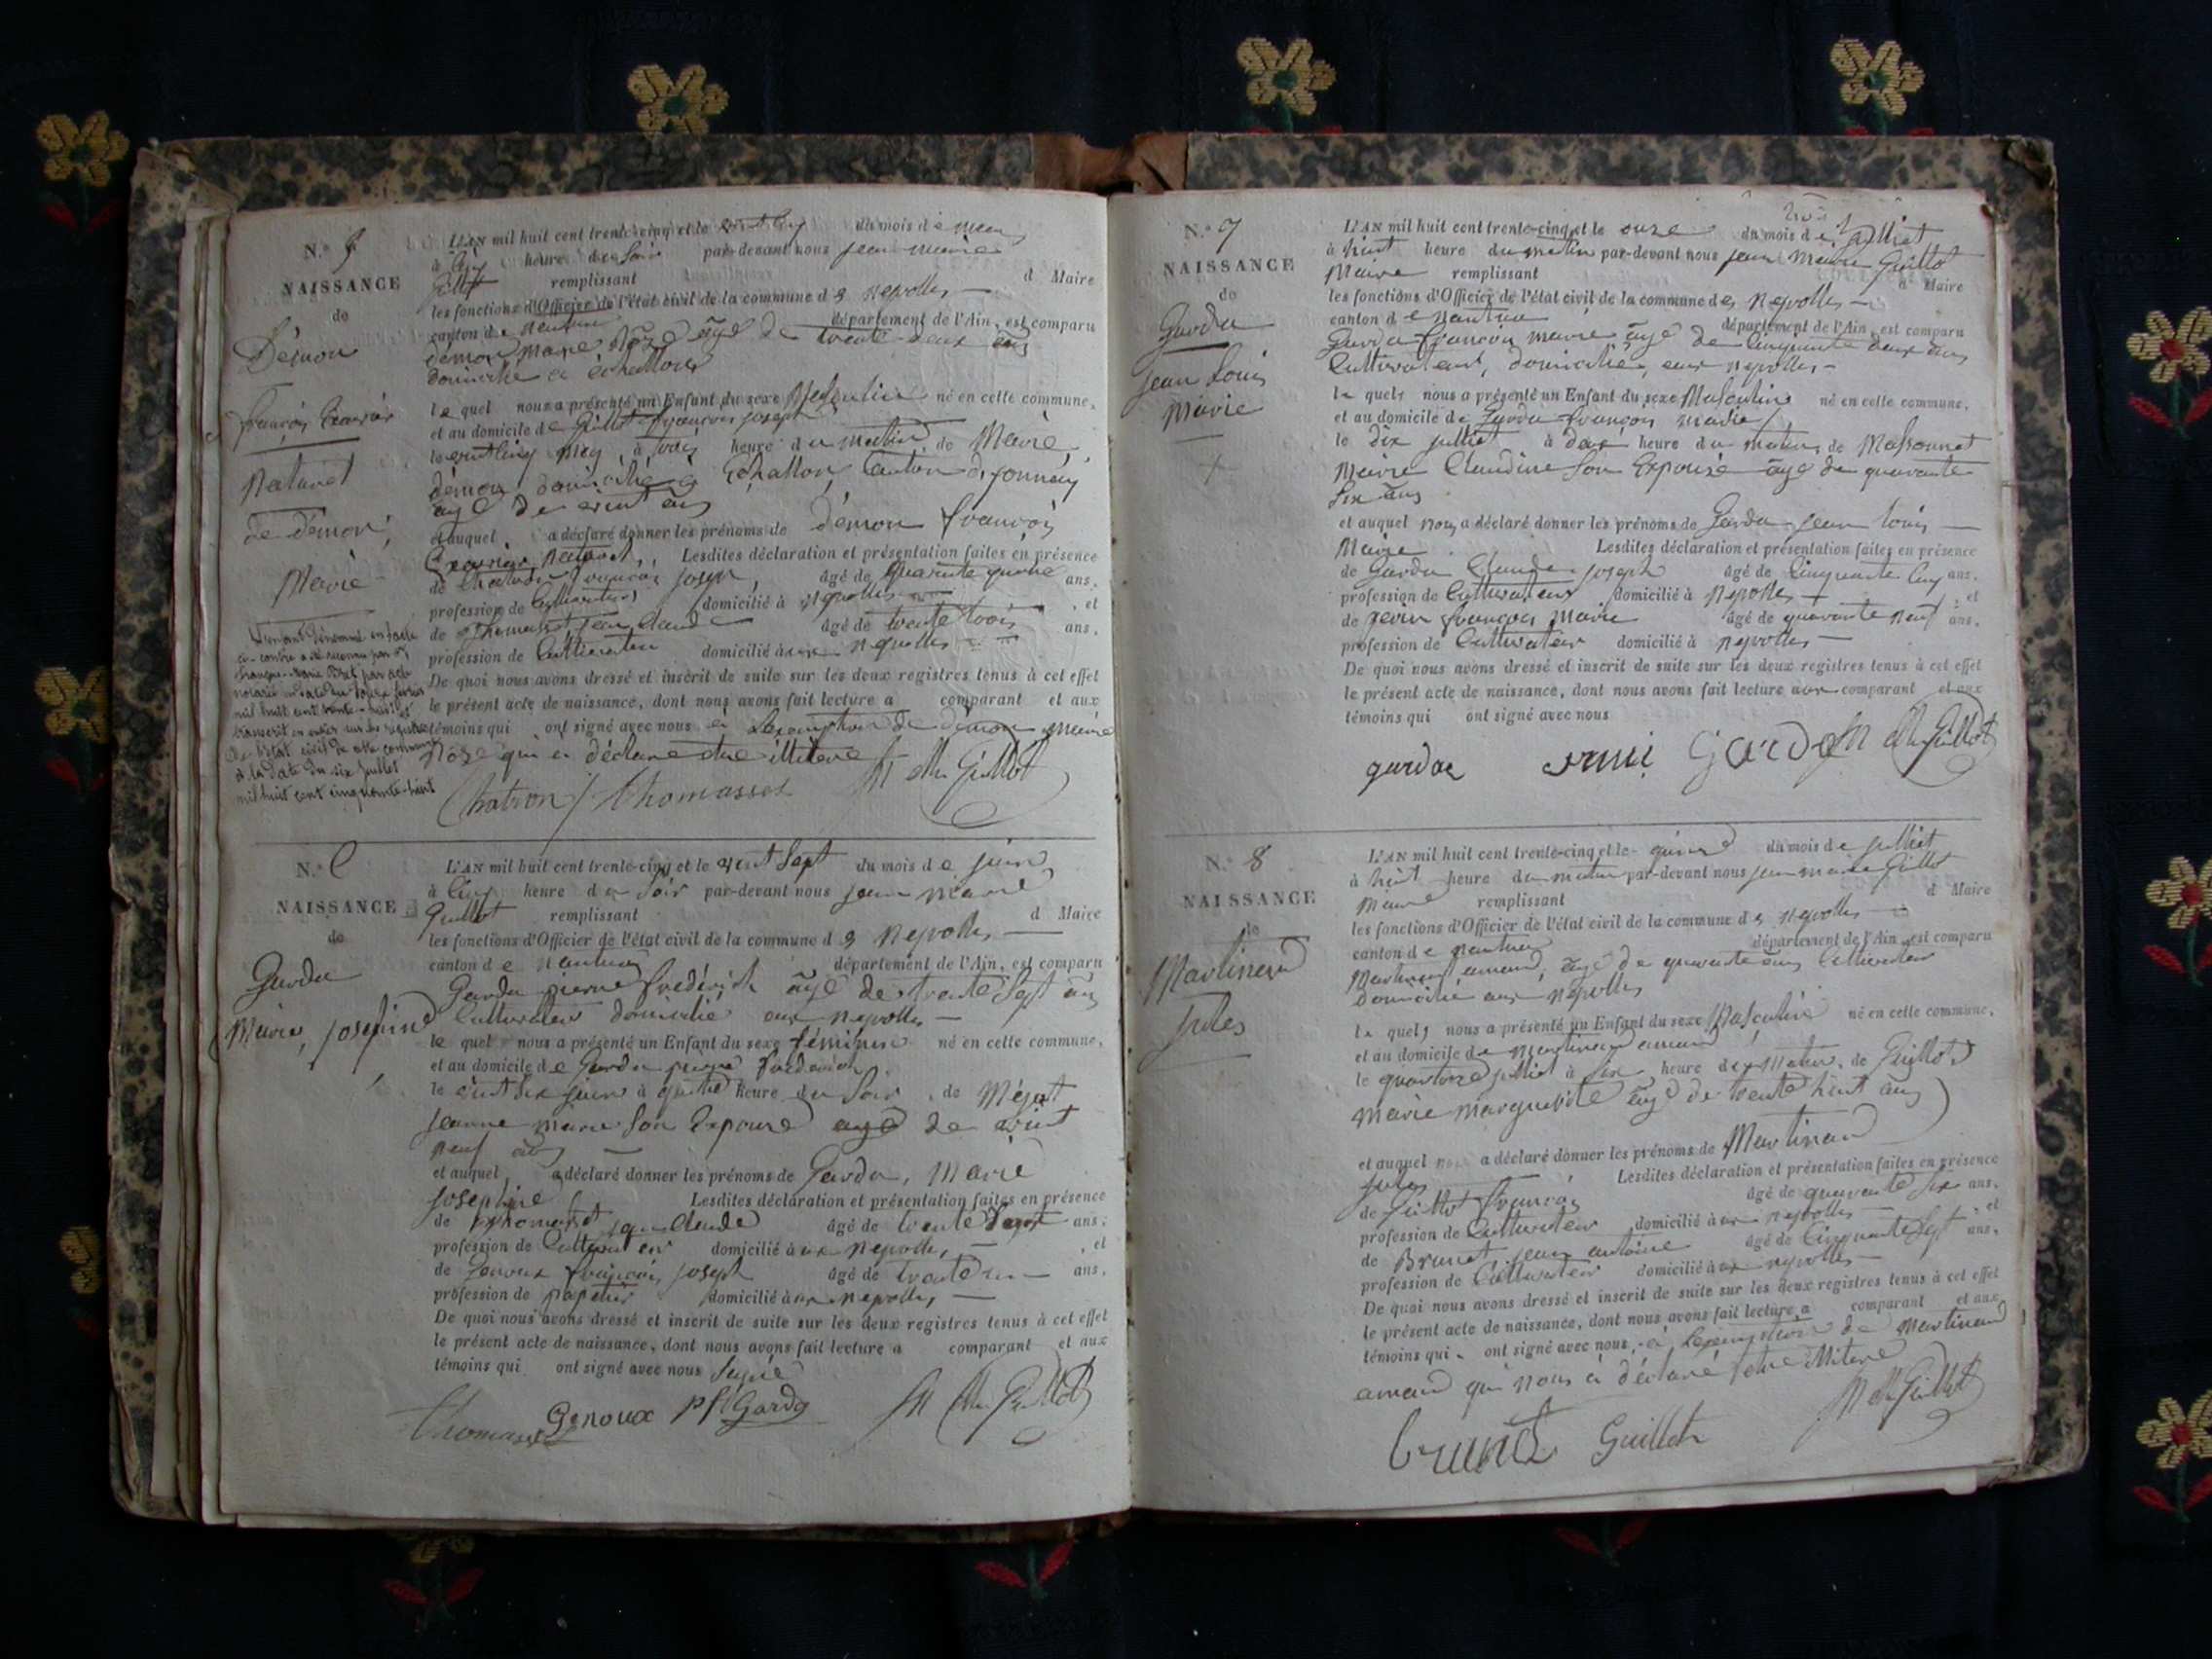 N.° 5
NAISSANCE
de
Démon
françois Exavier
Naturel
de démon,
Marie
L'enfant dénommé en l'acte
ci-contre a été reconnu par
françois-Marie par acte
notarié
mil huit cent trente-huit
transcrit en entier sur les registres
de l'état civil de cette commune
à la date du six Juillet
mil huit cent cinquante-huit
L'AN mil huit cent trente-cinq et le vint cinq du mois de may
à cinq heure du soir par-devant nous jean marie
Guillot remplissant d Maire
les fonctions d'Officier de l'état civil de la commune des neyrolles
canton de nantua département de l'Ain, est comparu
démon marie Roze âgé de trente deux ans
domicilié à échallon
lequel nous a présenté un Enfant du sexe Masculin né en cette commune,
et au domicile de Guillot françois joseph
le vint cinq may, à trois heure du matin de Marie,
démon domicilié à Echallon, canton d'oyonnax
âgé de vint ans
et auquel a déclaré donner les prénoms de démon françois
Exavier naturel, Lesdites déclaration et présentation faites en présence
de Chatron françois joseph, âgé de quarante quatre ans,
profession de Cultivateur domicilié à neyrolles , et
de Thomasset jean claude âgé de trente trois ans,
profession de Cultivateur domicilié aux neyrolles
De quoi nous avons dressé et inscrit de suite sur les deux registres tenus à cet effet
le présent acte de naissance, dont nous avons fait lecture a comparant et aux
témoins qui ont signé avec nous à Lexemption de démon marie
Roze qui a déclaré être illitéré
Chatron Thomasset JM Guillot
N.°
NAISSANCE
de
Garda
Marie, josephine
L'AN mil huit cent trente-cinq et le vint sept du mois de juin
à cinq heure du soir par-devant nous jean marie
Guillot remplissant d Maire
les fonctions d'Officier de l'état civil de la commune des neyrolles
canton de nantua département de l'Ain, est comparu
Garda pierre frédérich âgé de trente sept ans
Cultivateur domicilié aux neyrolles
le quel nous a présenté un Enfant du sexe féminin né en cette commune,
et au domicile de Garda pierre frederich
le vint six juin à quatre heure du soir , de Mégat
jeanne marie son Epouse âgé de vint
neuf ans
et auquel a déclaré donner les prénoms de Garda, Marie
josephine Lesdites déclaration et présentation faites en présence
de thomasset jean claude âgé de trente ans,
profession de Cultivateur domicilié aux neyrolles , et
de Genoux françois joseph âgé de trente un ans,
profession de papetier domicilié aux neyrolles
De quoi nous avons dressé et inscrit de suite sur les deux registres tenus à cet effet
le présent acte de naissance, dont nous avons fait lecture a comparant et aux
témoins qui ont signé avec nous signé
Thomasset Genoux P f Garda JM Guillot
N.° 7
NAISSANCE
de
Garda
jean Louis
Marie
L'AN mil huit cent trente-cinq et le onze du mois de julliet
à huit heure du matin par-devant nous jean Marie Guillot
Maire remplissant d Maire
les fonctions d'Officier de l'état civil de la commune des neyrolles
canton de nantua département de l'Ain, est comparu
Garda françois marie âgé de cinquante deux ans
Cultivateur, domicilié, aux neyrolles
le quel nous a présenté un Enfant du sexe Masculin né en cette commune,
et au domicile de Garda françois marie
le dix julliet à deux heure du matin, de Massonnet
Marie Claudine son Epouse âgé de quarante
six ans
et auquel nous a déclaré donner les prénoms de Garda jean louis
Marie Lesdites déclaration et présentation faites en présence
de Garda Claude joseph âgé de Cinquante cinq ans,
profession de Cultivateur domicilié à Neyrolles , et
de françois Marie âgé de quarante neuf ans,
profession de Cultivateur domicilié à neyrolles
De quoi nous avons dressé et inscrit de suite sur les deux registres tenus à cet effet
le présent acte de naissance, dont nous avons fait lecture aux comparant et aux
témoins qui ont signé avec nous
garda Garda JM Guillot
N.° 8
NAISSANCE
de
Martinand
Jules
L'AN mil huit cent trente-cinq et le quinze du mois de julliet
à huit heure du matin par-devant nous jean marie Guillot
Maire remplissant d Maire
les fonctions d'Officier de l'état civil de la commune des neyrolles
canton de nantua département de l'Ain, est comparu
Martinand amand, âgé de quarante ans Cultivateur
domicilié aux neyrolles
le quel nous a présenté un Enfant du sexe Masculin né en cette commune,
et au domicile de Martinand amand
le quatorze julliet à six heure du matin, de Guillot
marie marguerite âgé de trente huit ans
et auquel a déclaré donner les prénoms de Martinand
jules Lesdites déclaration et présentation faites en présence
de Guillot françois âgé de quarante six ans,
profession de Cultivateur domicilié aux neyrolles , et
de Brunet jean antoine âgé de Cinquante sept ans,
profession de Cultivateur domicilié aux neyrolles
De quoi nous avons dressé et inscrit de suite sur les deux registres tenus à cet effet
le présent acte de naissance, dont nous avons fait lecture a comparant et aux
témoins qui ont signé avec nous, à Lexemption de Martinand
amand qui nous a déclaré être illitéré
brunet Guillot JM Guillot